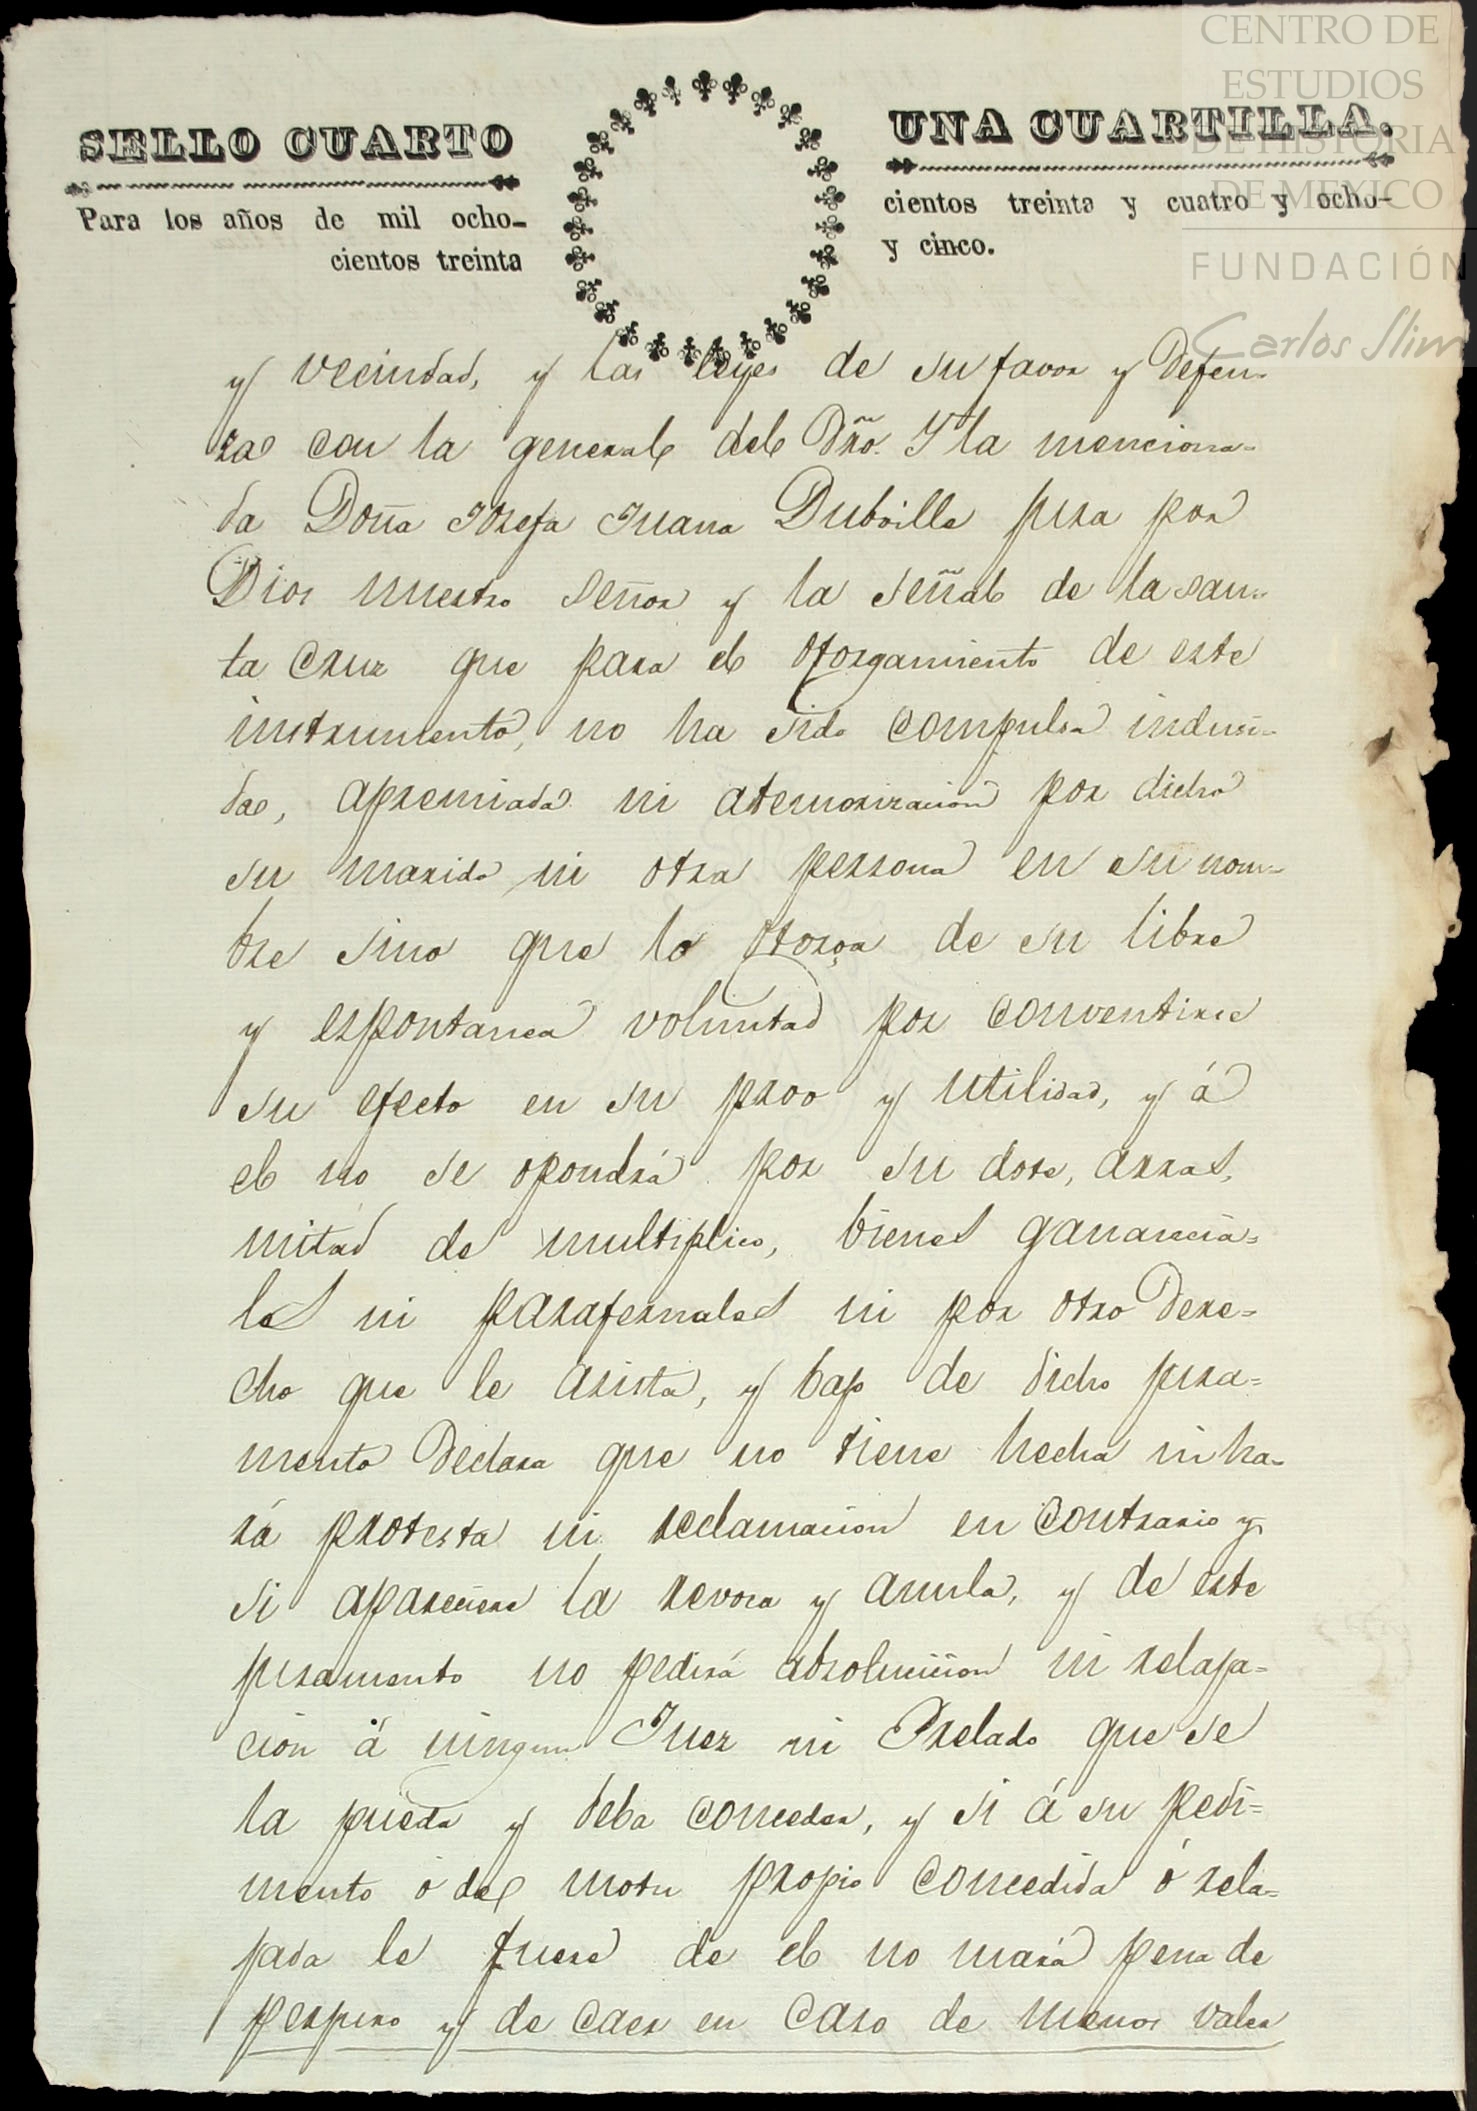 CENTRO DE
ESTUDIOS
DE HISTORIA
DE MEXICO
FUNDACIÓN
Carlos Slim
SELLO CUARTO
UNA CUARTILLA.
Para los años de mil ocho-
cientos treinta
cientos treinta y cuatro y ocho-
y cinco.
y vecindad, y las leyes de su favor y defen-
sa con la general del Dr̃o. Y la menciona-
da Doña Josefa Juana Duboille jura por
Dios nuestro Señor y la Señal de la san-
ta Cruz que para el otorgamiento de este
instrumento, no ha sido compulsa induci-
da, apremiada ni atemorizacion por dicho
su marido ni otra persona en su nom-
bre sino que lo otorga de su libre
y espontanea voluntad por conventirse
su efecto en su proo y utilidad, y á
el no se opondrá por su dote, arras,
mitad de multiplico, bienes ganancia=
les ni parafernales ni por otro Dere=
cho que le asista, y bajo de dicho jura=
mento Declara que no tiene hecha ni ha-
rá protesta ni reclamacion en contrario y
si apareciere la revoca y anula, y de este
juramento no pedirá absolucion ni relaja=
cion á ningun Juez ni Prelado que se
la pueda y deba conceder, y si á su pedi=
mento ó de motu propio concedida ó rela=
jada le fuere de el no usará pena de
perjuro y de caer en caso de menos valer